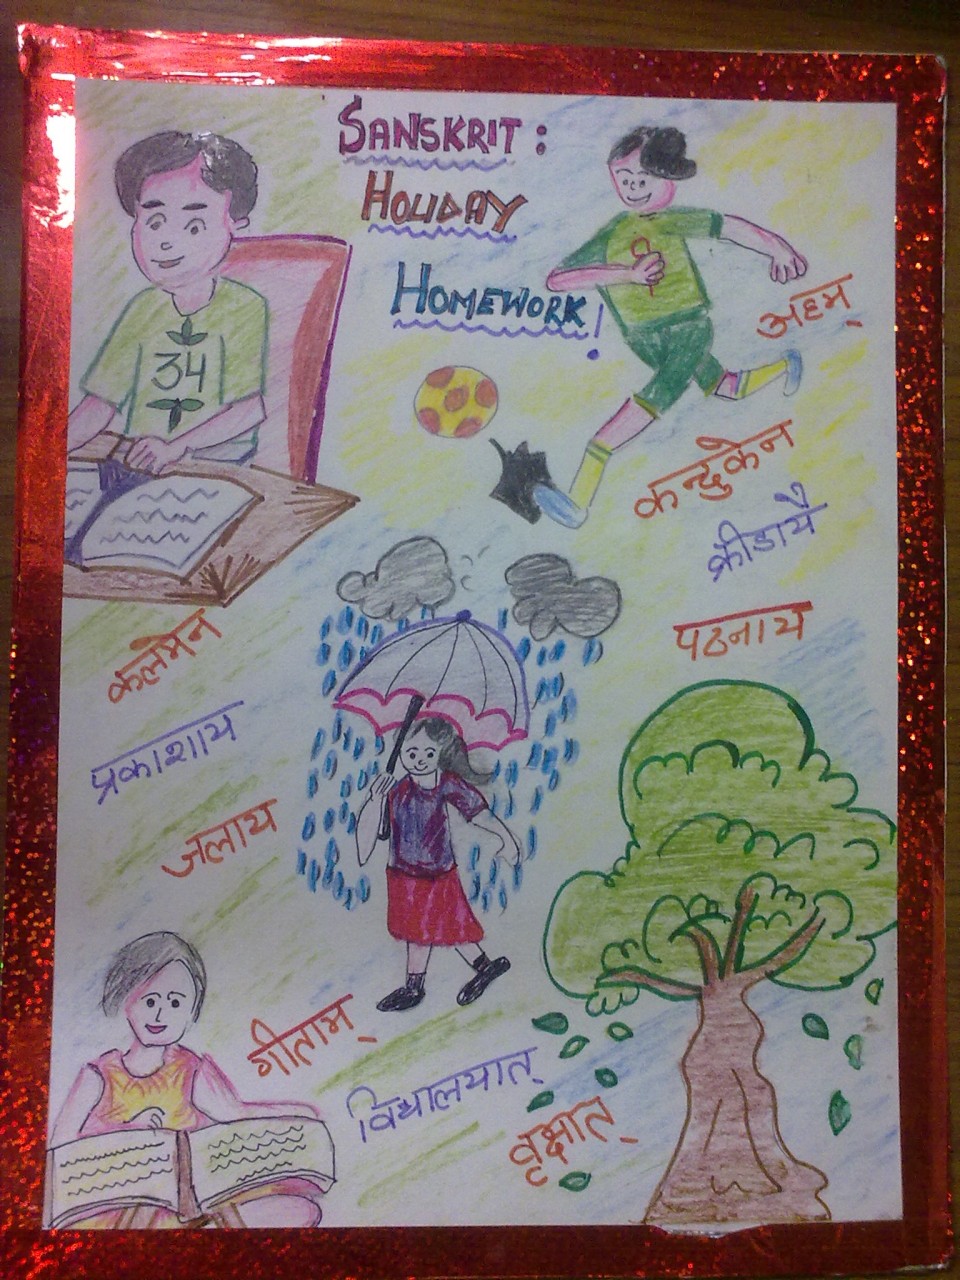 SANSKRIT:
HOLIDAY
HOMEWORK!
34
अहम्
कन्दुकेन
क्रीडायै
पठनाय
कलमेन
प्रकाशाय
जलाय
गीताम्
विद्यालयात्
वृक्षात्